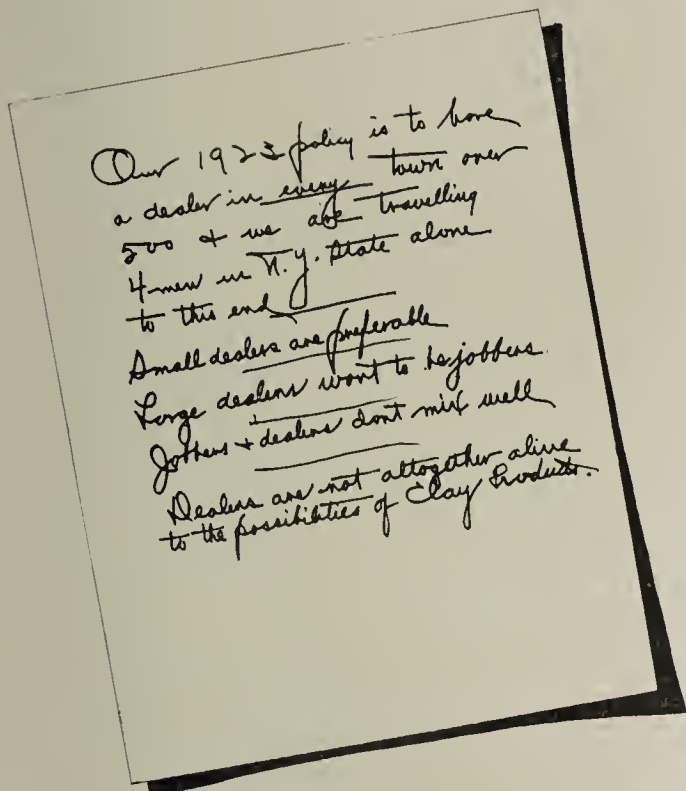 Our 1923 policy is to have
a dealer in every town over
500 + we are travelling
4 men in N.Y. State alone
to this end
Small dealers are preferable
Large dealers want to be jobbers.
Jobbers + dealers dont mix well
Dealers are not altogether alive
to the possibilities of Clay Products.